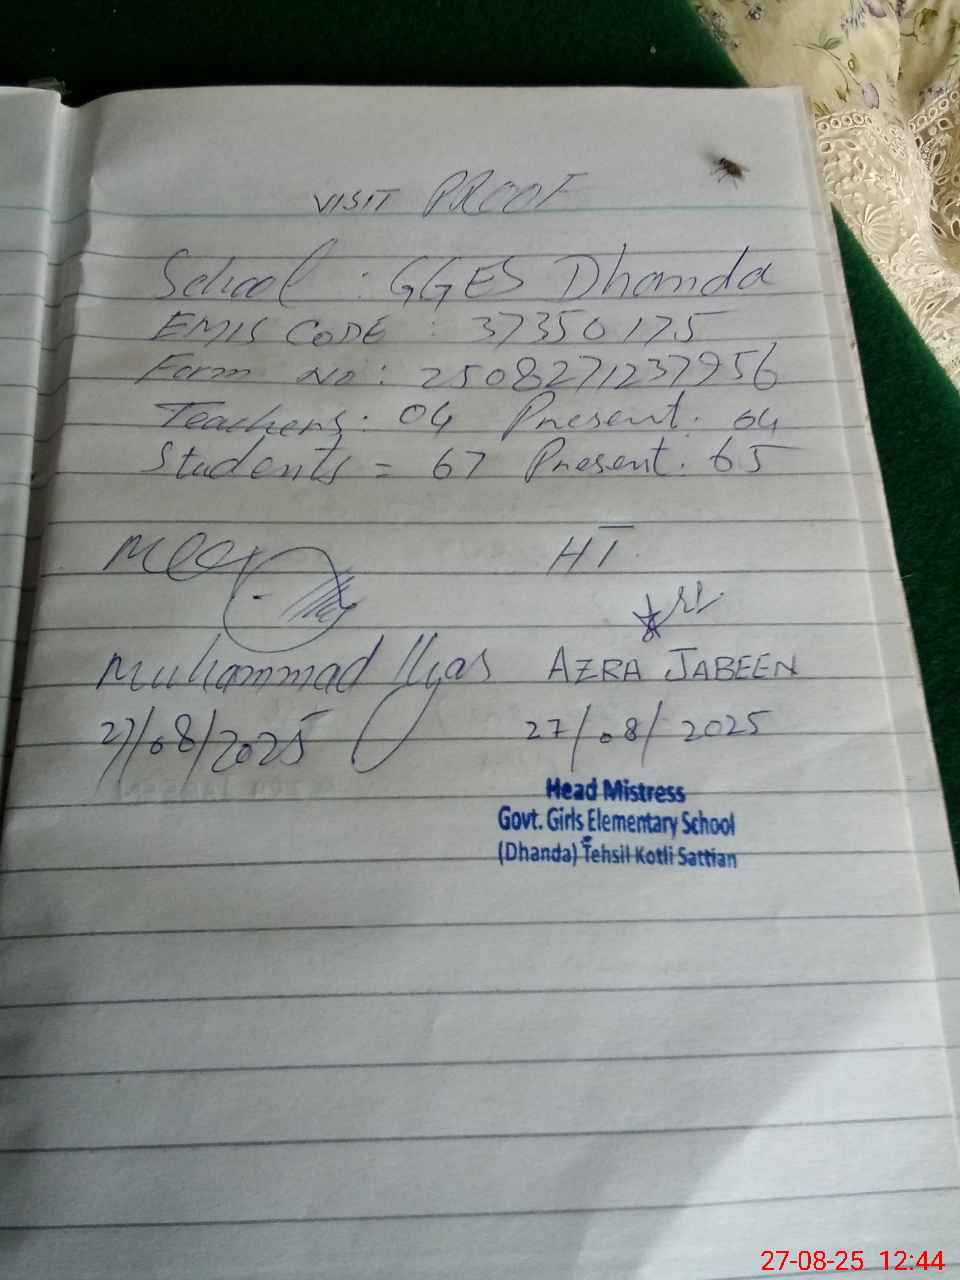 VISIT PROOF
School : GGES Dhanda
EMIS CODE : 37350175
Form No : 2508271237956
Teachers : 04 Present . 04
Students = 67 Present . 65
HT
Muhammad Ilyas AZRA JABEEN
27/08/2025 27/08/2025
Head Mistress
Govt. Girls Elementary School
(Dhanda) Tehsil Kotli Sattian
27-08-25 12:44